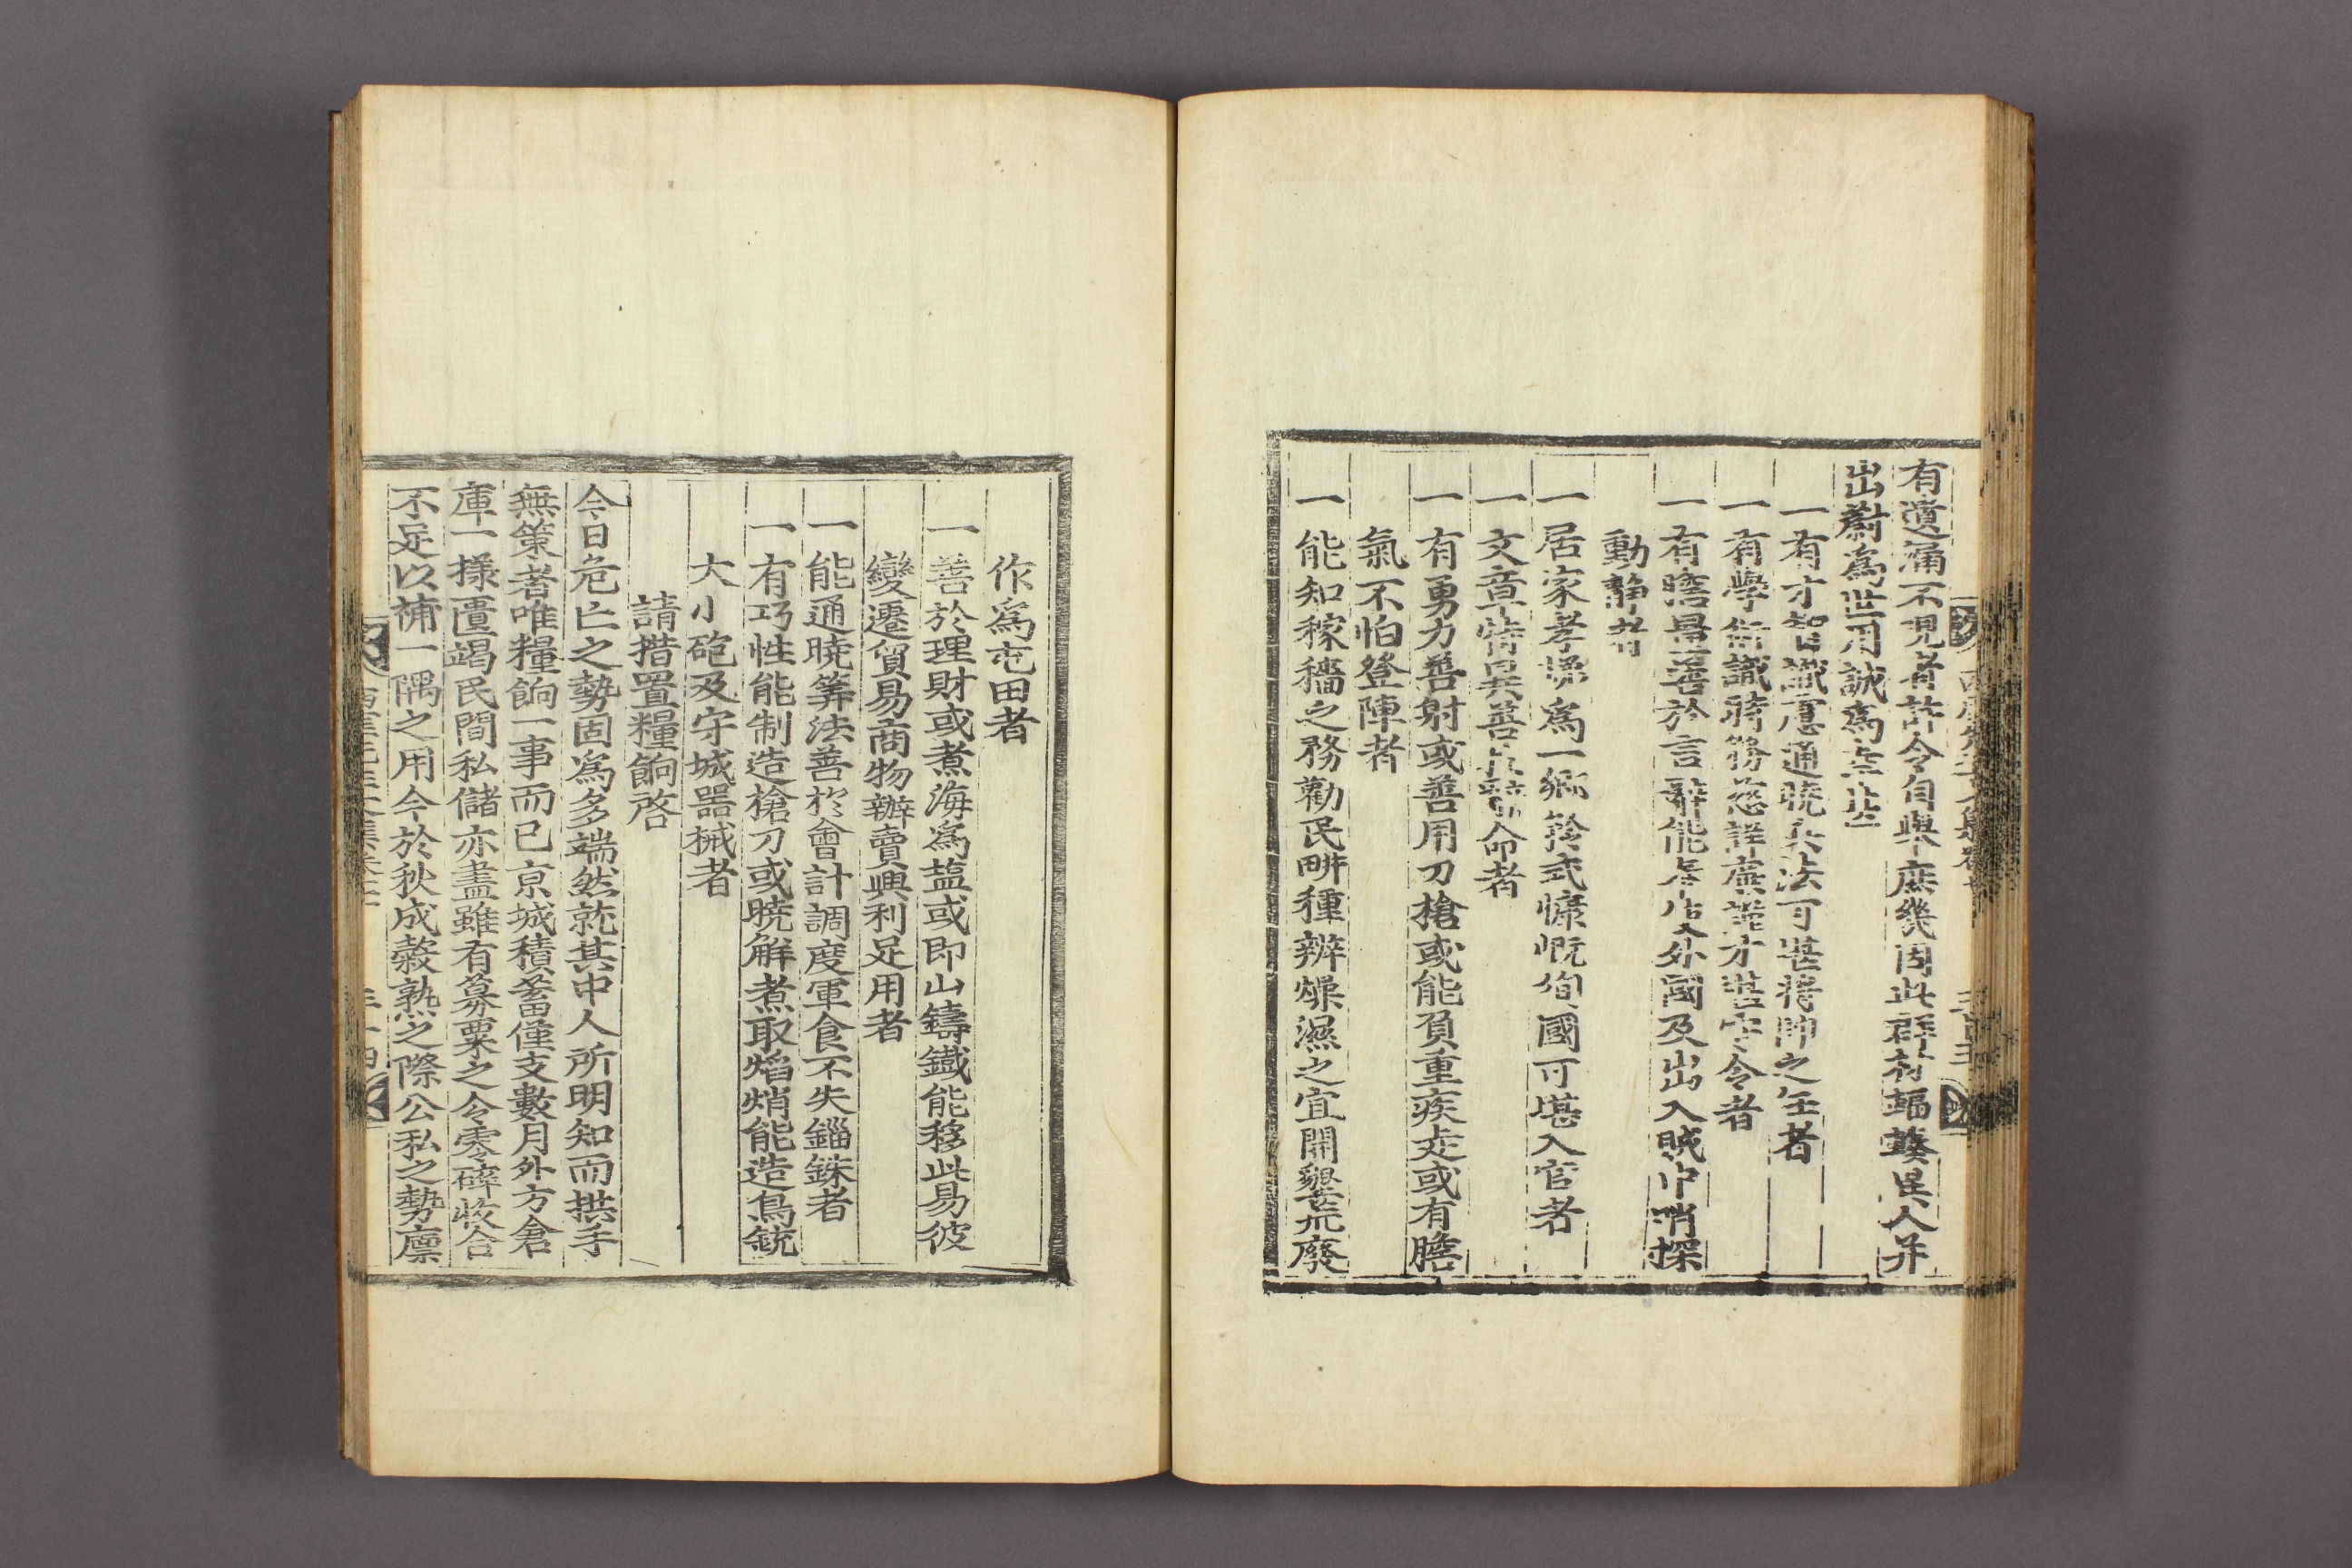 有遺漏不現者許令自與庶幾因此群材輻輳異人并
出蔚爲世用誠爲
一有才智識慮通曉兵法可堪將帥之任者
一有學術識時務慈詳廉謹才堪守令者
一有膽畧善於言辭能奉使外國及出入賊中哨探
動静者
一居家孝悌爲一鄉矜式慷慨徇國可堪入官者
一文章特異善於辭命者
一有勇力善射或善用刀槍或能負重疾走或有膽
氣不怕登陣者
一能知稼穡之務勸民畊種辨燥濕之宜開墾荒廢
作爲屯田者
一善於理財或煮海爲塩或即山鑄鐵能移此易彼
變遷貿易商物辦賣興利足用者
一能通曉筭法善於會計調度軍食不失錙銖者
一有巧性能制造槍刀或曉解煮取焰焇能造鳥銃
大小砲及守城噐械者
請措置糧餉啓
今日危亡之勢固爲多端然就其中人所明知而拱手
無策者唯糧餉一事而已京城積蓄僅支數月外方倉
庫一㨾匱竭民間私儲亦盡雖有募粟之令零碎收合
不足以補一隅之用今於秋成穀熟之際公私之勢廪